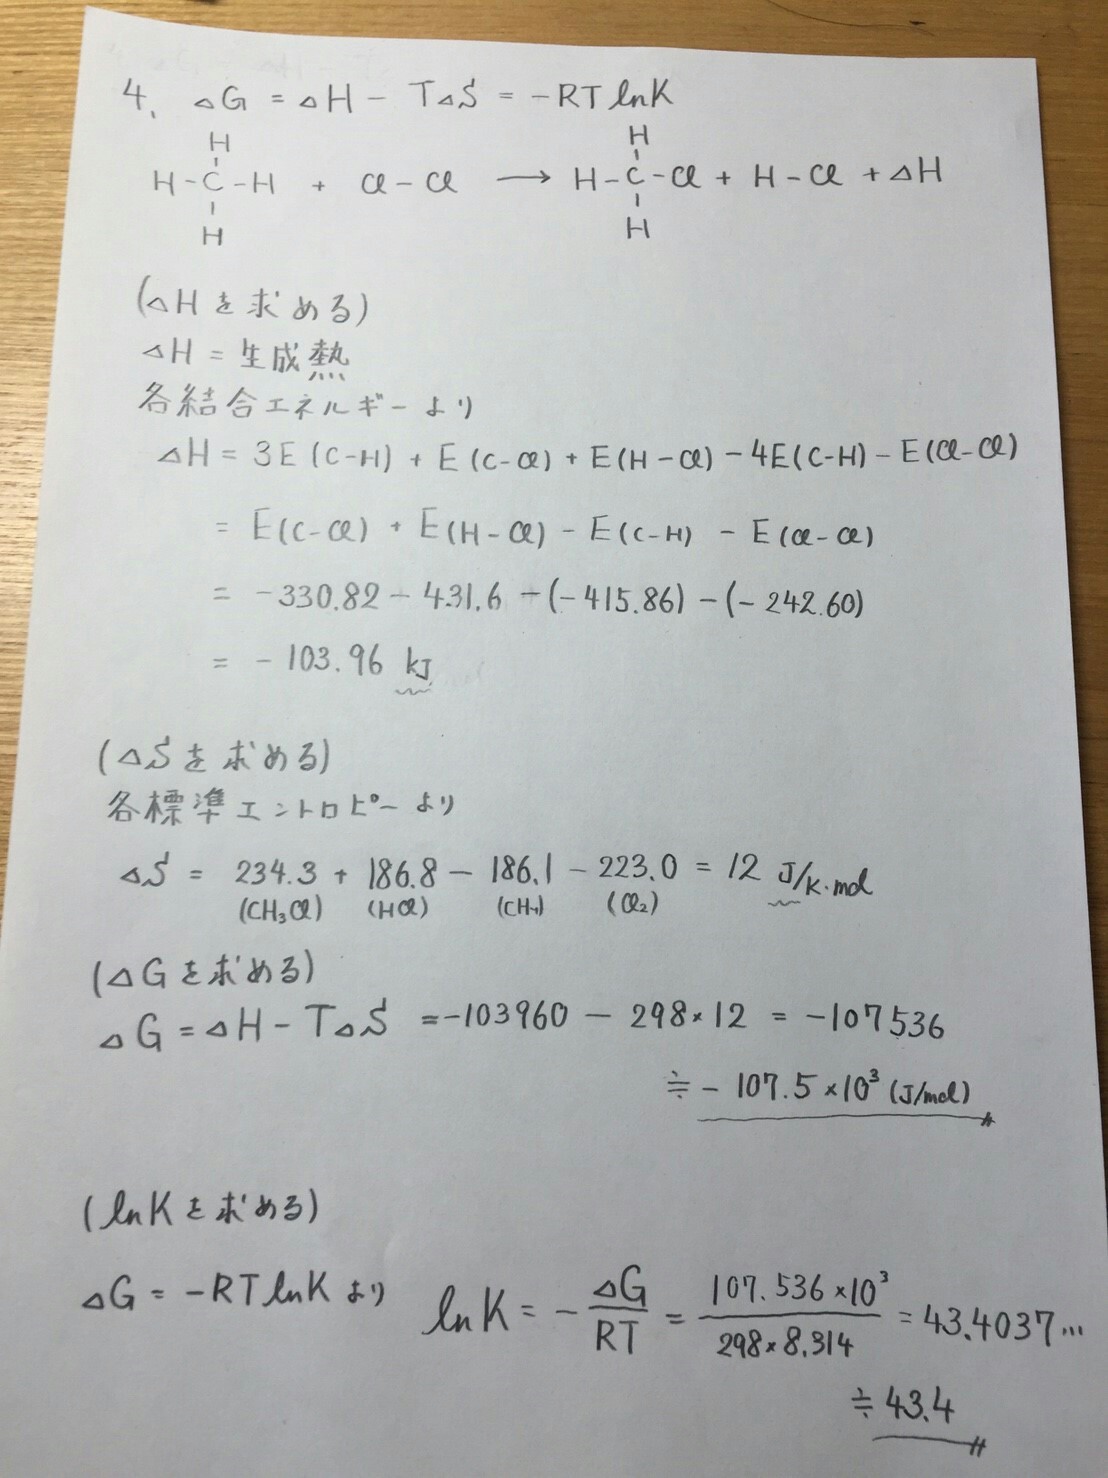 4. △G = △H - T△S = -RT lnK
H H
H-C-H + Cl-Cl → H-C-Cl + H-Cl + △H
H H
(△Hを求める)
△H = 生成熱
各結合エネルギーより
△H = 3E(C-H) + E(C-Cl) + E(H-Cl) - 4E(C-H) - E(Cl-Cl)
= E(C-Cl) + E(H-Cl) - E(C-H) - E(Cl-Cl)
= -330.82 - 431.6 -(-415.86) -(-242.60)
= -103.96 kJ
(△Sを求める)
各標準エントロピーより
△S = 234.3 + 186.8 - 186.1 - 223.0 = 12 J/K·mol
(CH₃Cl) (HCl) (CH₄) (Cl₂)
(△Gを求める)
△G = △H - T△S = -103960 - 298×12 = -107536
≒ -107.5×10³ (J/mol)
(lnKを求める)
△G = -RT lnKより lnK = - △G/RT = 107.536×10³/298×8.314 = 43.4037...
≒ 43.4